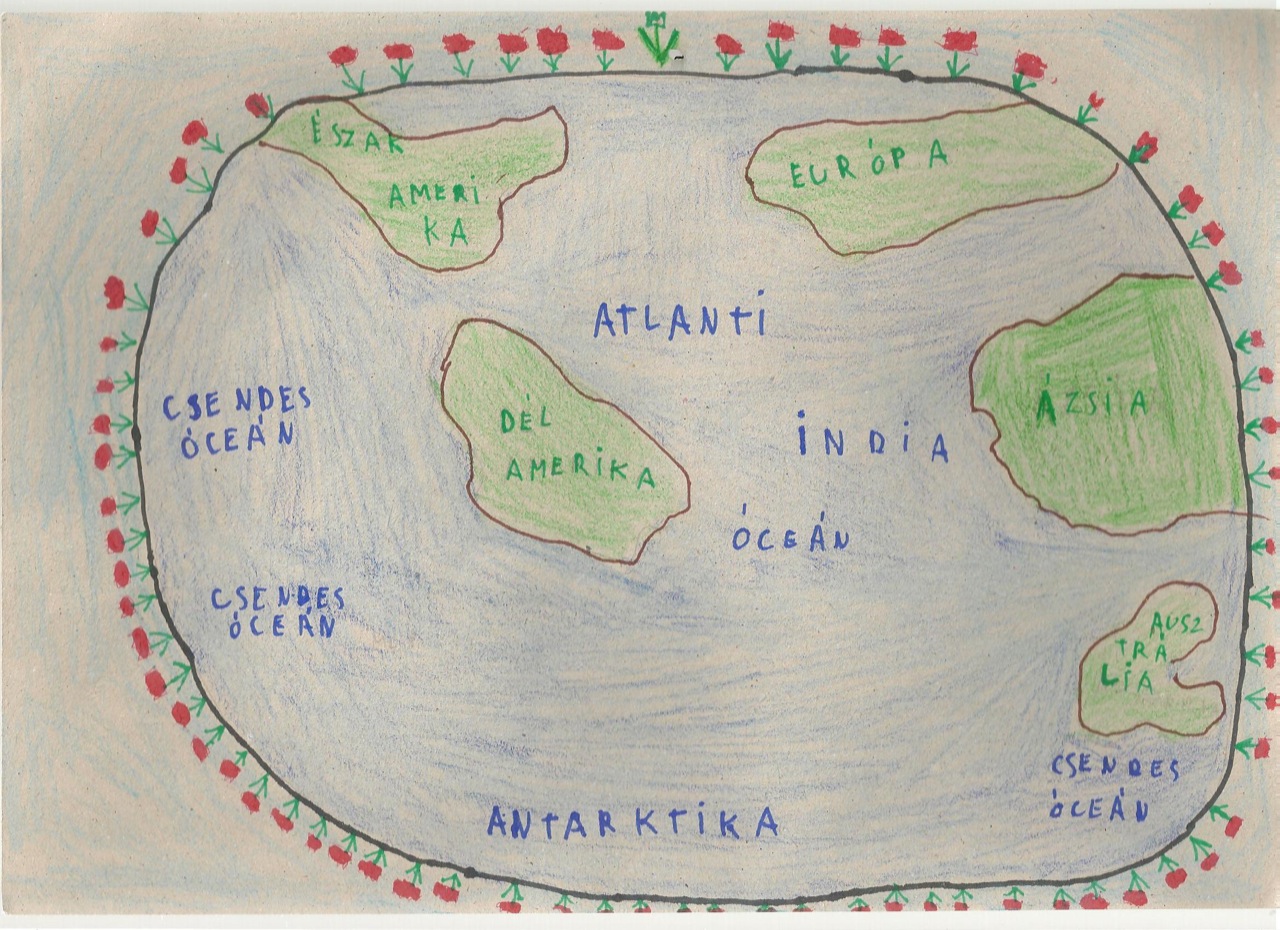 ÉSZAK
AMERI
KA
EURÓPA
ATLANTI
DÉL
AMERIKA
CSENDES
ÓCEÁN
INDIA
ÁZSIA
ÓCEÁN
CSENDES
ÓCEÁN
AUSZ
TRÁ
LIA
CSENDES
ÓCEÁN
ANTARKTIKA